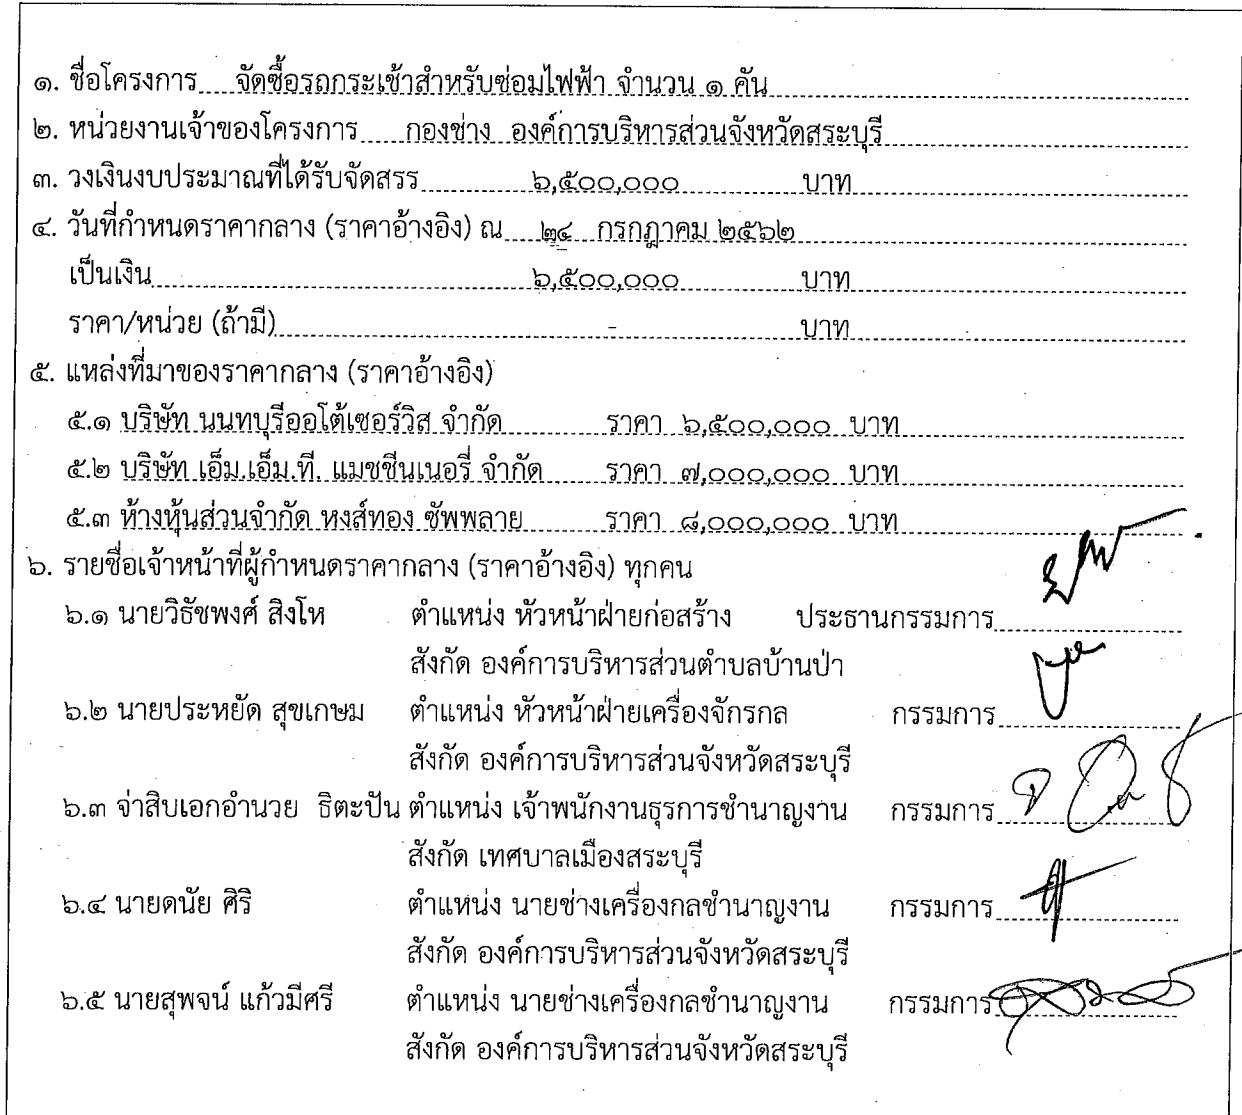 ๑. ชื่อโครงการ จัดซื้อรถกระเช้าสำหรับซ่อมไฟฟ้า จำนวน ๑ คัน
๒. หน่วยงานเจ้าของโครงการ กองช่าง องค์การบริหารส่วนจังหวัดสระบุรี
๓. วงเงินงบประมาณที่ได้รับจัดสรร ๖,๕๐๐,๐๐๐ บาท
๔. วันที่กำหนดราคากลาง (ราคาอ้างอิง) ณ ๒๔ กรกฎาคม ๒๕๖๒
เป็นเงิน ๖,๕๐๐,๐๐๐ บาท
ราคา/หน่วย (ถ้ามี) - บาท
๕. แหล่งที่มาของราคากลาง (ราคาอ้างอิง)
๕.๑ บริษัท นนทบุรีออโต้เซอร์วิส จำกัด ราคา ๖,๕๐๐,๐๐๐ บาท
๕.๒ บริษัท เอ็ม.เอ็ม.ที. แมชชีนเนอรี่ จำกัด ราคา ๗,๐๐๐,๐๐๐ บาท
๕.๓ ห้างหุ้นส่วนจำกัด หงส์ทอง ซัพพลาย ราคา ๘,๐๐๐,๐๐๐ บาท
๖. รายชื่อเจ้าหน้าที่ผู้กำหนดราคากลาง (ราคาอ้างอิง) ทุกคน
๖.๑ นายวิธัชพงศ์ สิงโห ตำแหน่ง หัวหน้าฝ่ายก่อสร้าง ประธานกรรมการ
สังกัด องค์การบริหารส่วนตำบลบ้านป่า
๖.๒ นายประหยัด สุขเกษม ตำแหน่ง หัวหน้าฝ่ายเครื่องจักรกล กรรมการ
สังกัด องค์การบริหารส่วนจังหวัดสระบุรี
๖.๓ จ่าสิบเอกอำนวย ธิตะปัน ตำแหน่ง เจ้าพนักงานธุรการชำนาญงาน กรรมการ
สังกัด เทศบาลเมืองสระบุรี
๖.๔ นายดนัย ศิริ ตำแหน่ง นายช่างเครื่องกลชำนาญงาน กรรมการ
สังกัด องค์การบริหารส่วนจังหวัดสระบุรี
๖.๕ นายสุพจน์ แก้วมีศรี ตำแหน่ง นายช่างเครื่องกลชำนาญงาน กรรมการ
สังกัด องค์การบริหารส่วนจังหวัดสระบุรี